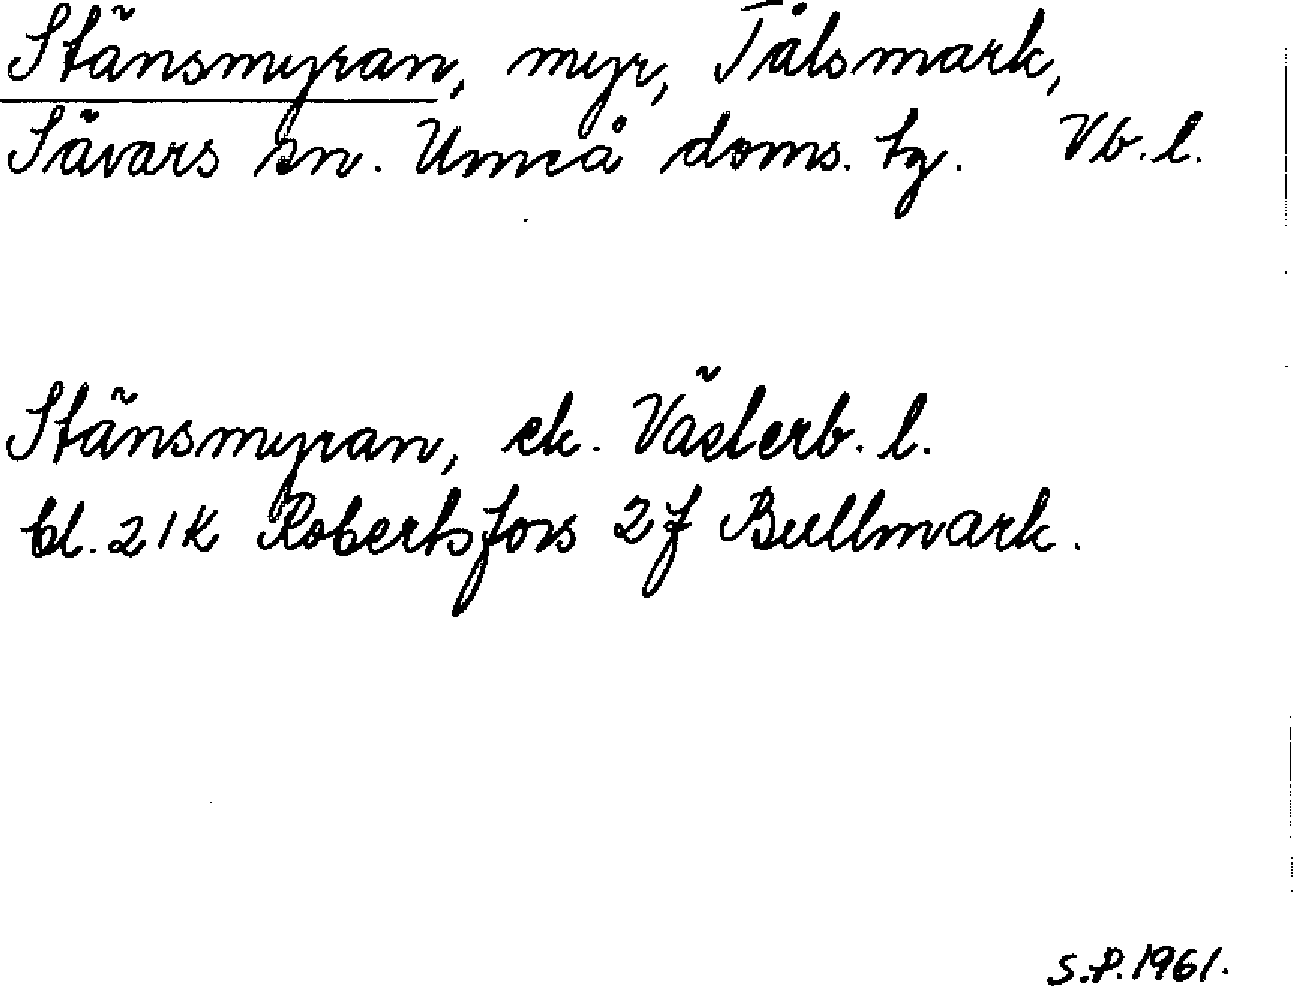 Stänsmyran, myr, Tålsmark,
Sävars sn. Umeå doms. tg. Vb. l.
Stänsmyran, ek. Västerb. l.
bl. 21K Robertsfors 2f Bullmark.
S.P. 1961.